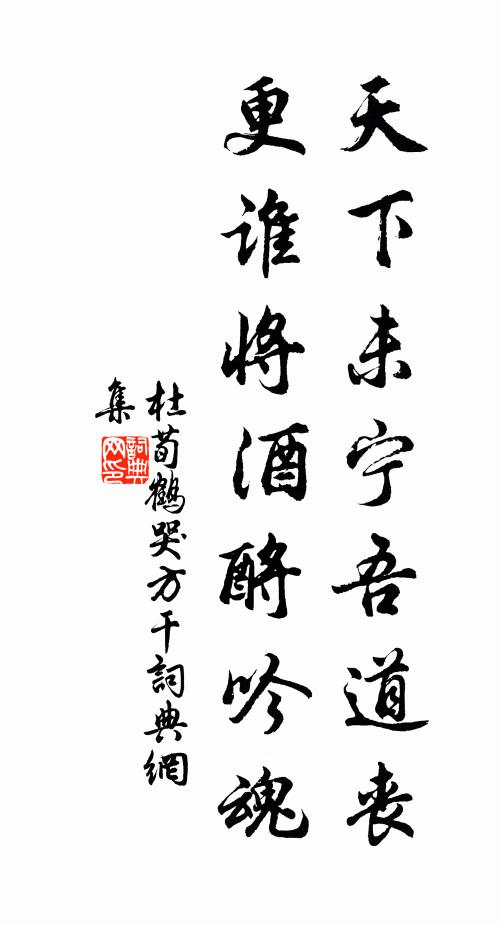 天下未宁吾道丧
更谁将酒酹吟魂
杜荀鶴哭方干詞典網
集
詞典网印